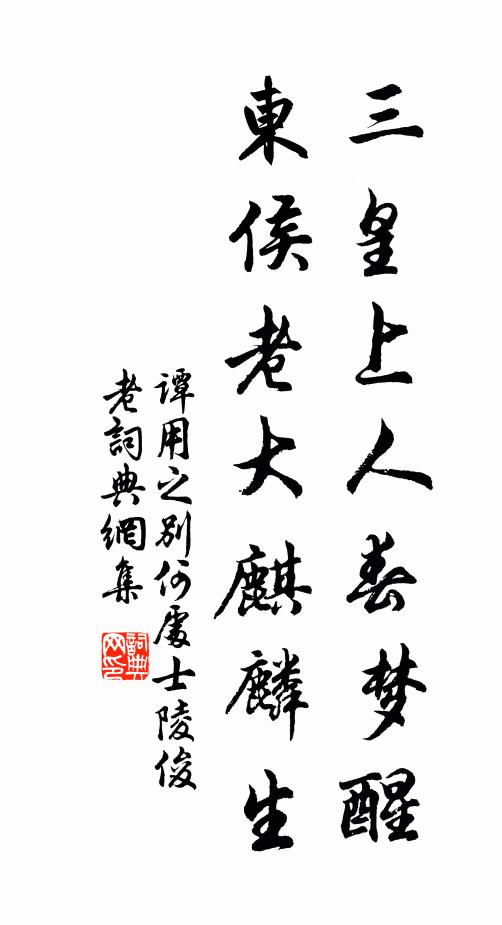 三皇上人春梦醒
東侯老大麒麟生
譚用之別何處士陵俊
老詞典網集
詞典网印